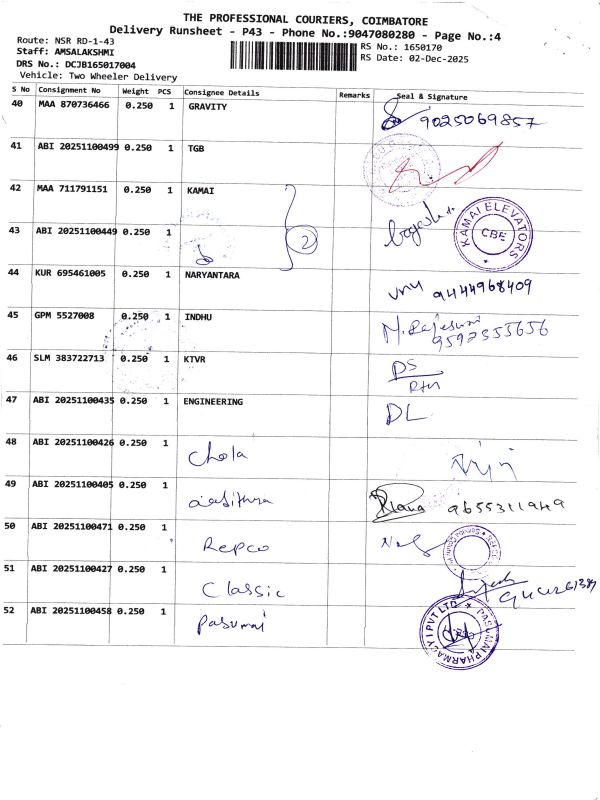 THE PROFESSIONAL COURIERS, COIMBATORE
Delivery Runsheet - P43 - Phone No.:9047080280 - Page No.:4
Route: NSR RD-1-43
Staff: AMSALAKSHMI
DRS No.: DCJB165017004
Vehicle: Two Wheeler Delivery
RS No.: 1650170
RS Date: 02-Dec-2025
S No Consignment No Weight PCS Consignee Details Remarks Seal & Signature
40 MAA 870736466 0.250 1 GRAVITY 9025069857
41 ABI 20251100499 0.250 1 TGB
42 MAA 711791151 0.250 1 KAMAI
43 ABI 20251100449 0.250 1 2 KAMAI ELEVATORS CBE
44 KUR 695461005 0.250 1 NARYANTARA 9444968409
45 GPM 5527008 0.250 1 INDHU M. Rajeswari 9592555656
46 SLM 383722713 0.250 1 KTVR DS
47 ABI 20251100435 0.250 1 ENGINEERING DL
48 ABI 20251100426 0.250 1 Chola
49 ABI 20251100405 0.250 1 9655311949
50 ABI 20251100471 0.250 1 Repco
51 ABI 20251100427 0.250 1 Classic
52 ABI 20251100458 0.250 1 Pasumai PASUMAI PHARMACY I PVT LTD